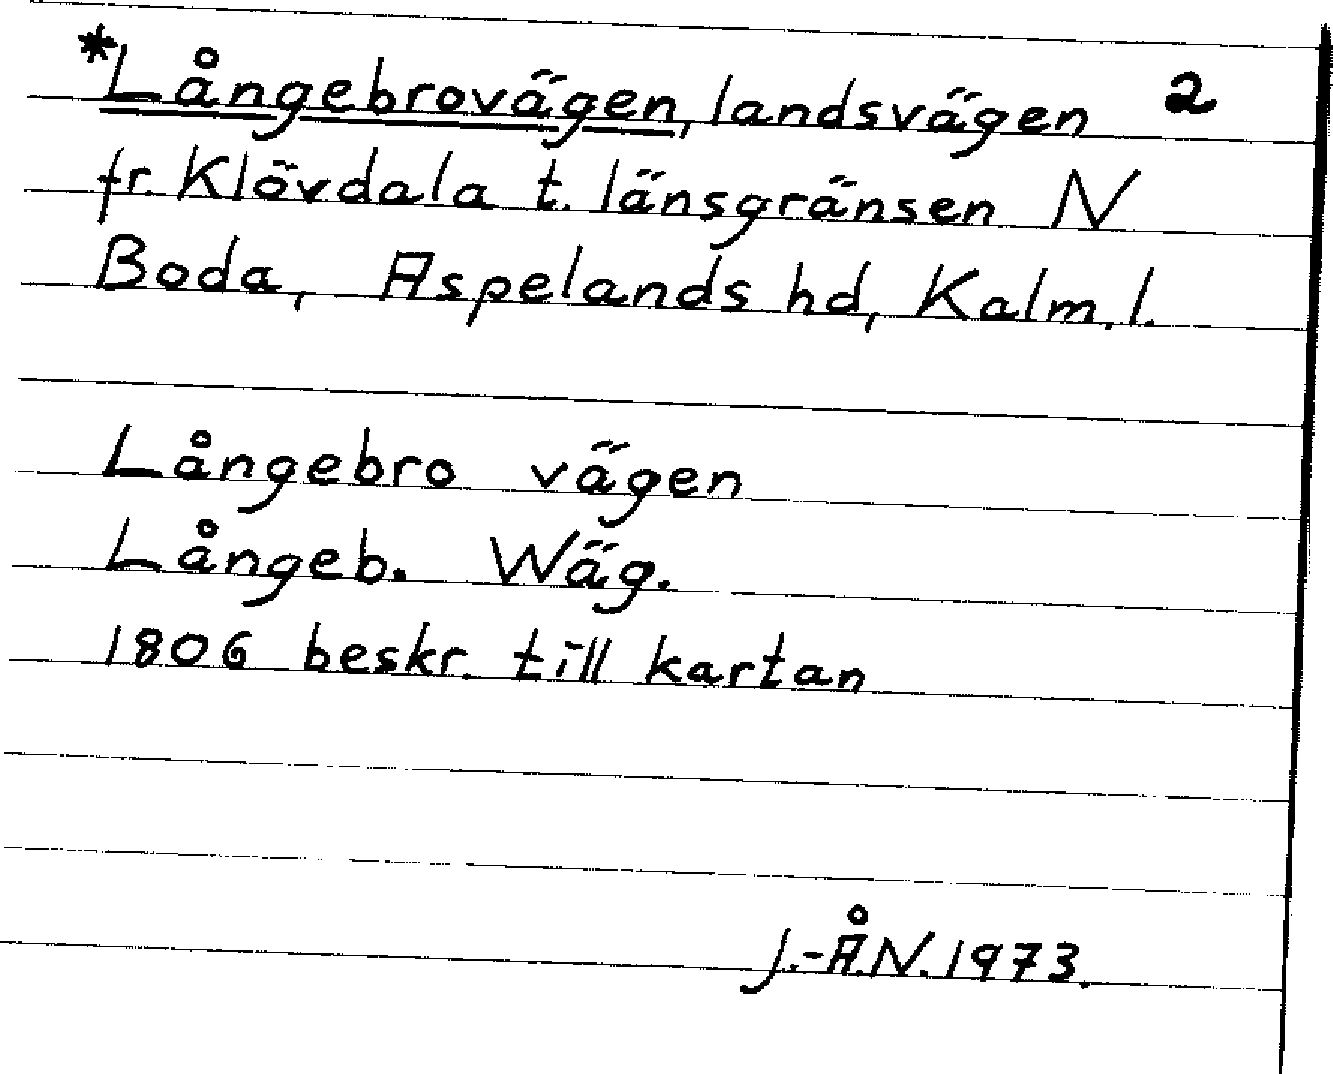 *Långebrovägen, landsvägen 2
fr. Klövdala t. länsgränsen N
Boda, Aspelands hd, Kalm. l.
Långebro vägen
Långeb. Wäg.
1806 beskr. till kartan
J.-Å.N. 1973.